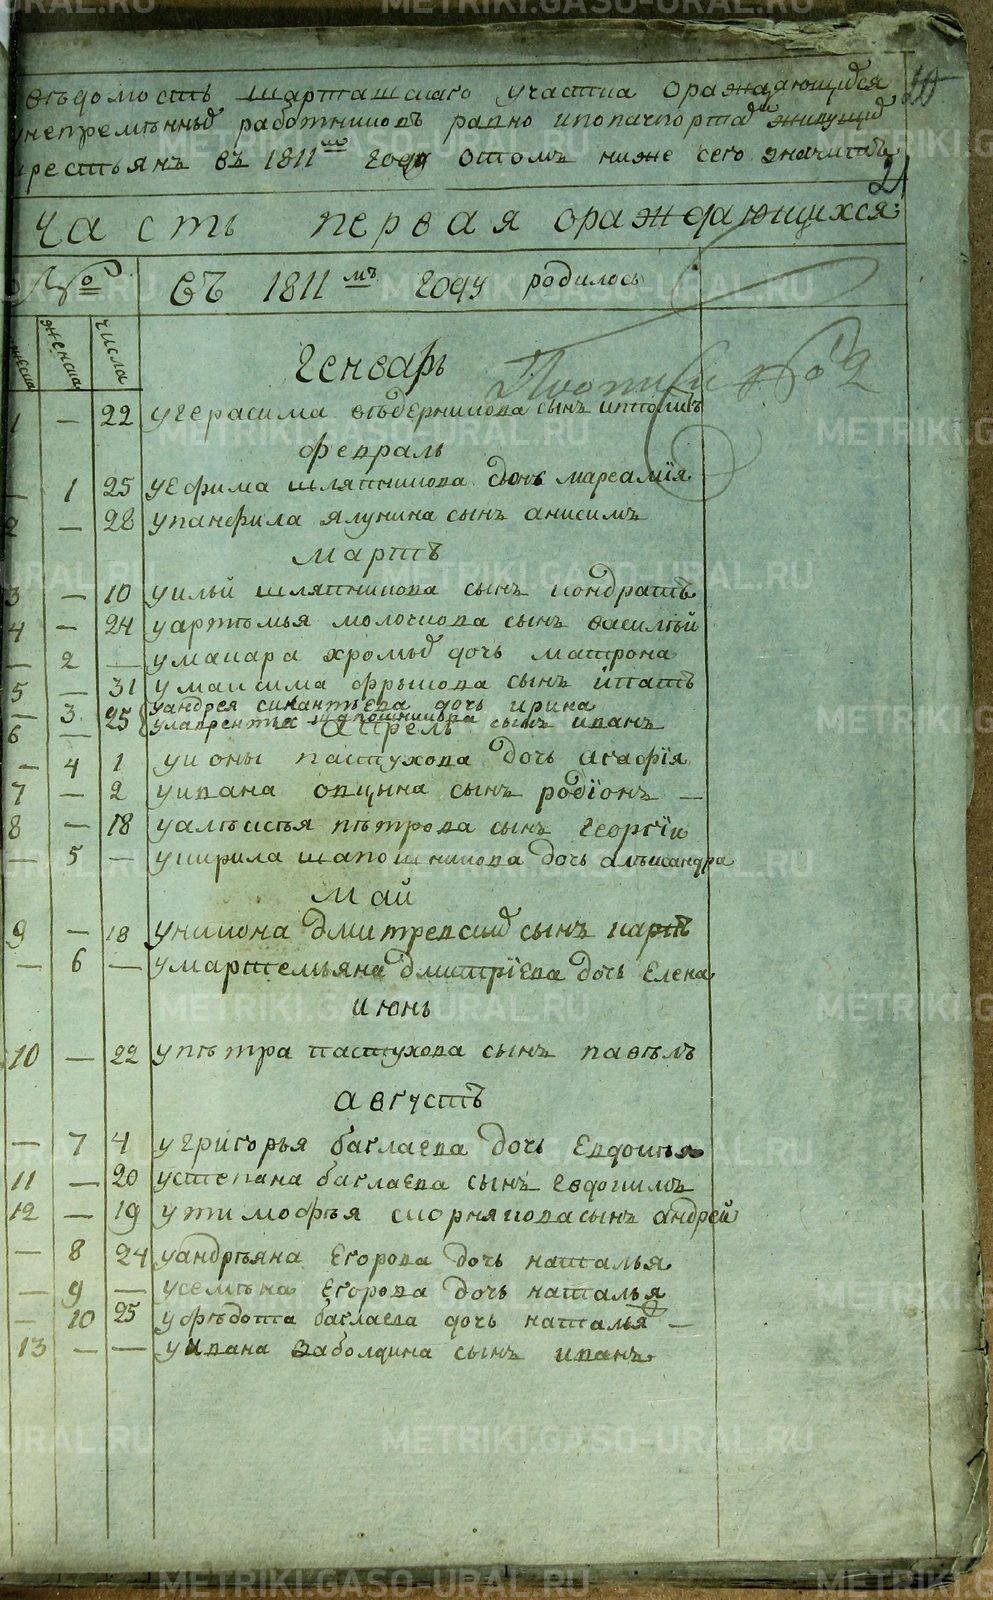 вѣдомость шарташскаго участка оражdающихся
непремѣнныхъ работниковъ равно ипопачпортамъ живущихъ
крестьянъ въ 1811мъ году отомъ ниже сего значитъ
21
часть первая ораждающихся
№
въ 1811мъ году родилось
женска
числа
генварь
№ 2
1 — 22 угерасима вѣдерникова сынъ иполитъ
февраль
— 1 25 уефима шляпникова дочь мареамїя
2 — 28 упанфила ялунина сынъ анисимъ
мартъ
3 — 10 уильи шляпникова сынъ кондратъ
4 — 24 уартемья молочкова сынъ василѣй
— 2 — умакара хромых дочь матрона
5 — 31 умаксима фрыкова сынъ ипатъ
— 3 25 уандрея силантьева дочь ирина
6 — улаврентья шапошникова сынъ иванъ
апрель
— 4 1 уионы пастухова дочь агафїя
7 — 2 уивана овцына сынъ родїонъ —
8 — 18 уалѣксѣя пѣтрова сынъ георгїи
— 5 — укирила шапошникова дочь алѣксандра
май
9 — 18 уникона дмитревских сынъ карпъ
— 6 — умартемьяна дмитрїева дочь елена
июнь
10 — 22 упѣтра пастухова сынъ павѣлъ
августъ
— 7 4 угригорья баклаева дочь евдокья
11 — 20 устепана баклаева сынъ евдокимъ
12 — 19 утимофѣя скорнякова сынъ андрей
— 8 24 уандрѣяна егорова дочь наталья
— 9 — усемѣна егорова дочь наталья
— 10 25 уфѣдота баклаева дочь наталья —
13 — — уивана заболдина сынъ иванъ
METRIKI.GASO-URAL.RU